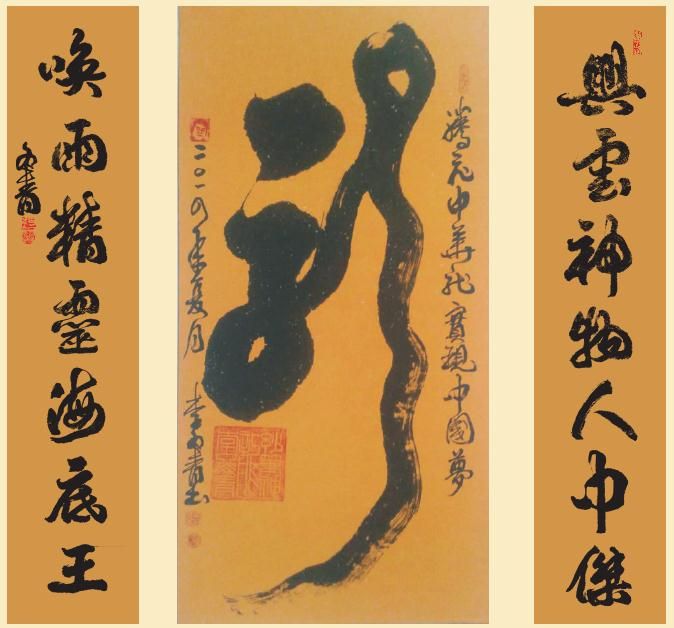 興雲神物人中傑
騰飛中華龙實現中國夢
龍
二〇一四年夏月
喚雨精靈海底王